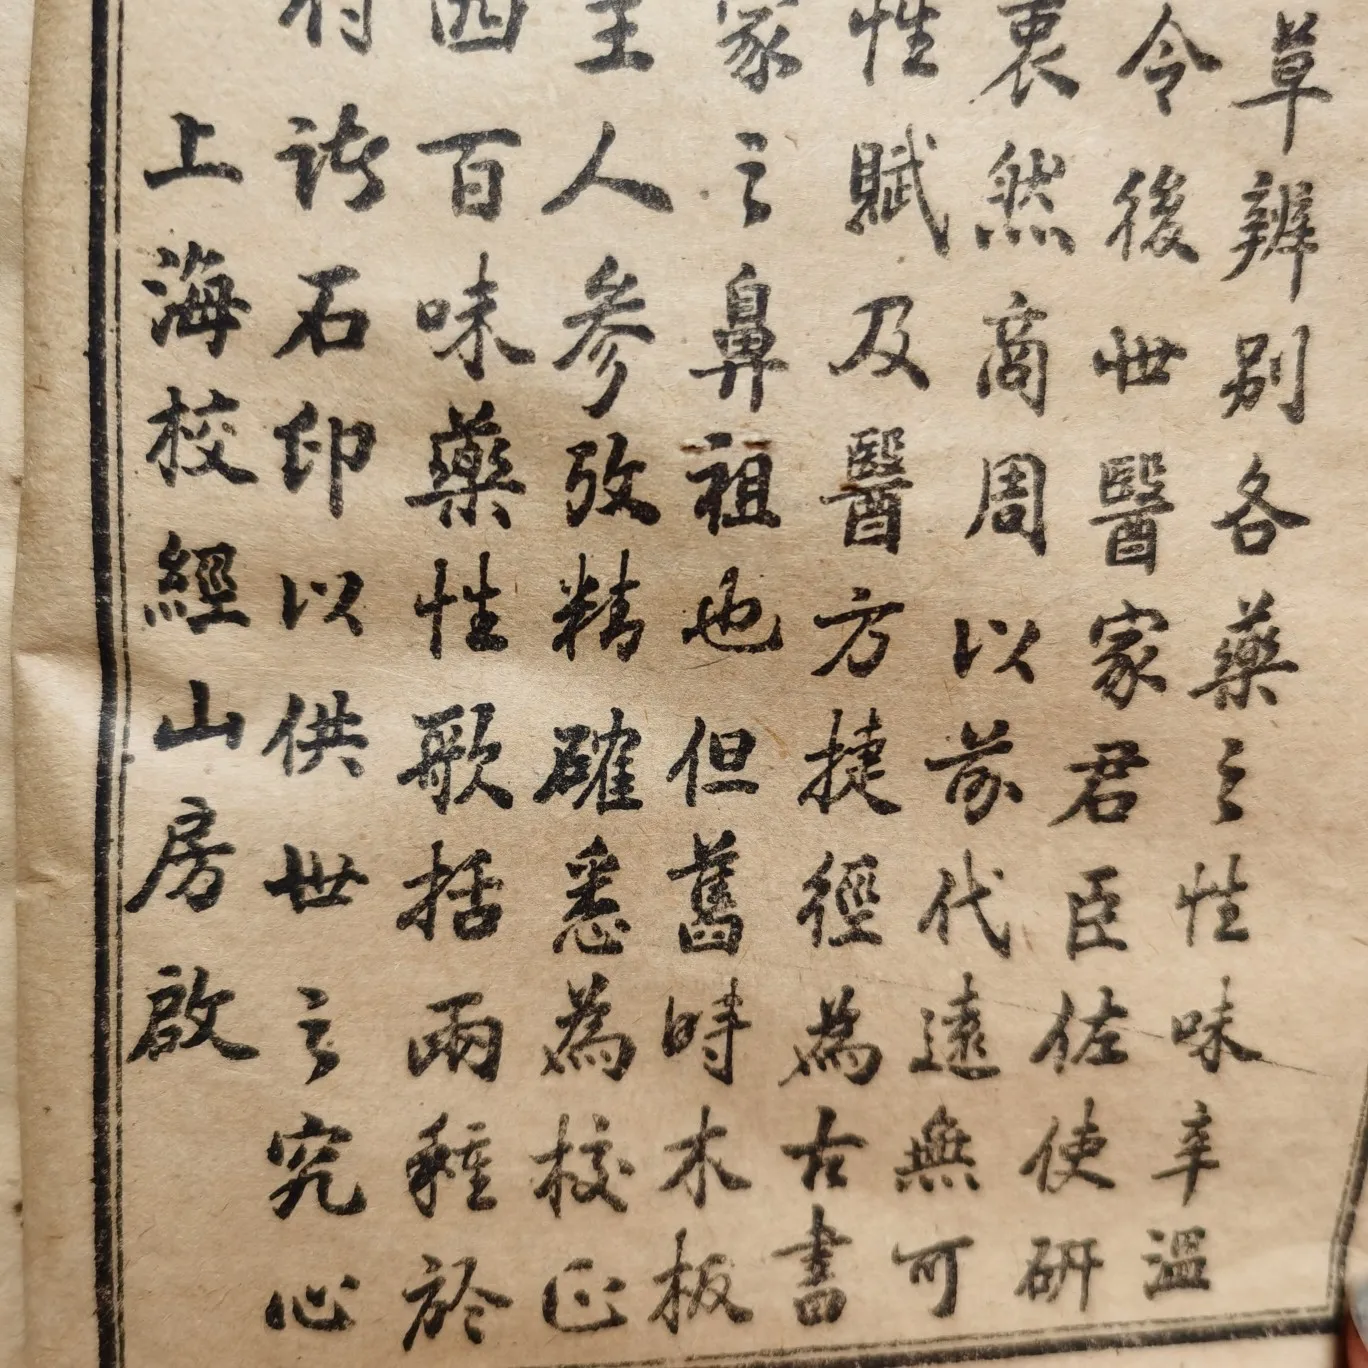 草辨别各藥之性味辛溫
令後世醫家君臣佐使研
衷然商周以前代遠無可
性賦及醫方捷徑為古書
家之鼻祖也但舊時木板
主人參攷精確悉為校正
四百味藥性歌括兩種於
付諸石印以供世之究心
上海校經山房啟